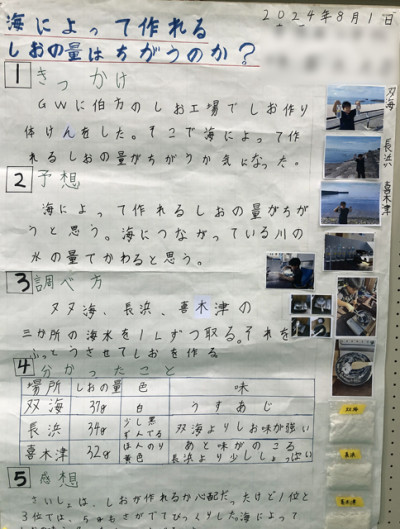 海によって作れる
しおの量はちがうのか？
2024年8月1日
1 きっかけ
GWに伯方のしお工場でしお作り
体けんをした。そこで海によって作
れるしおの量がちがうか気になった。
2 予想
海によって作れるしおの量がちが
うと思う。海につながっている川の
水の量でかわると思う。
3 調べ方
双海、長浜、喜木津の
三か所の海水を1Lずつ取る。それを
ふっとうさせてしおを作る
4 分かったこと
場所 しおの量 色 味
双海 37g 白 うすあじ
長浜 34g 少し黒ずんでる 双海よりしお味が強い
喜木津 32g ほんのり黄色 あと味がのこる 長浜より少ししょっぱい
5 感想
さいしょは、しおが作れるか心配だったけど1位と
3位では、5gもさがでてびっくりした。海によって
双海
長浜
喜木津
双海
長浜
喜木津